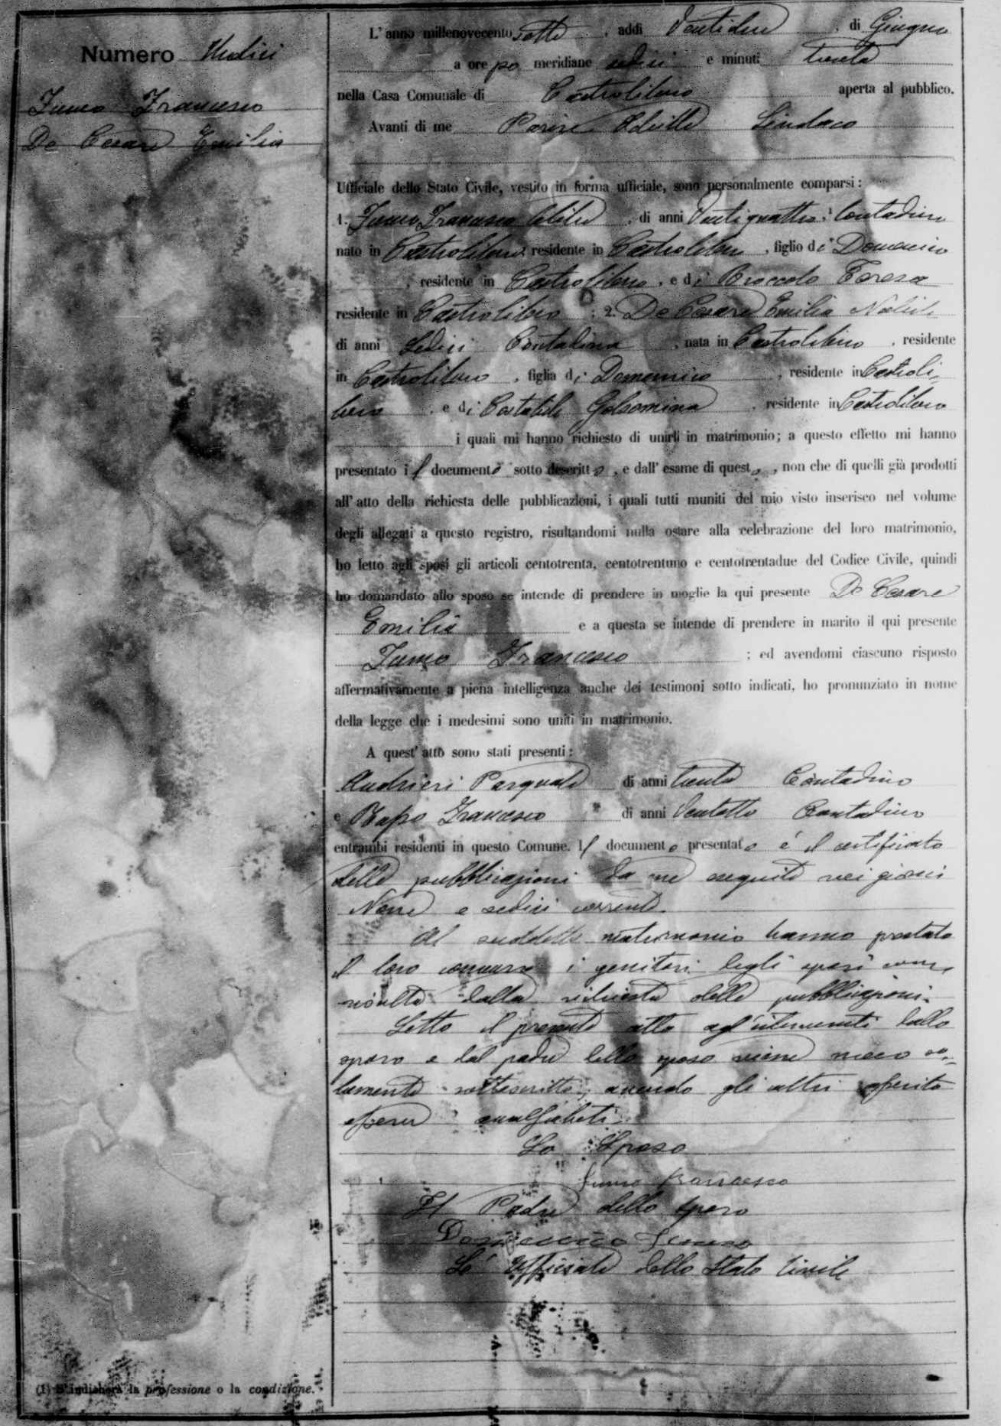 Numero Undici
Fumo Francesco
De Cesare Emilia
L'anno millenovecento sette, addì Ventidue, di Giugno
a ore po meridiane sedici e minuti trenta
nella Casa Comunale di Castrolibero aperta al pubblico.
Avanti di me Sindaco
Ufficiale dello Stato Civile, vestito in forma ufficiale, sono personalmente comparsi:
1. Fumo Francesco celibe, di anni Ventiquattro, Contadino
nato in Castrolibero, residente in Castrolibero, figlio di Domenico
, residente in Castrolibero, e di Broccolo Teresa
residente in Castrolibero; 2. De Cesare Emilia Nubile
di anni Sedici Contadina, nata in Castrolibero, residente
in Castrolibero, figlia di Domenico, residente in Castroli-
bero e di Costabile Gelsomina residente in Castrolibero
i quali mi hanno richiesto di unirli in matrimonio; a questo effetto mi hanno
presentato il documento sotto descritto, e dall'esame di questo, non che di quelli già prodotti
all'atto della richiesta delle pubblicazioni, i quali tutti muniti del mio visto inserisco nel volume
degli allegati a questo registro, risultandomi nulla ostare alla celebrazione del loro matrimonio,
ho letto agli sposi gli articoli centotrenta, centotrentuno e centotrentadue del Codice Civile, quindi
ho domandato allo sposo se intende di prendere in moglie la qui presente De Cesare
Emilia e a questa se intende di prendere in marito il qui presente
Fumo Francesco; ed avendomi ciascuno risposto
affermativamente a piena intelligenza anche dei testimoni sotto indicati, ho pronunziato in nome
della legge che i medesimi sono uniti in matrimonio.
A quest'atto sono stati presenti:
Andrieri Pasquale di anni trenta Contadino
e Francesco di anni Ventotto Contadino
entrambi residenti in questo Comune. Il documento presentato è il certificato
delle pubblicazioni da me eseguite nei giorni
Nove e sedici corrente.
Al suddetto matrimonio hanno prestato
il loro consenso i genitori degli sposi come
risulta dalla richiesta delle pubblicazioni.
Letto il presente atto agl'intervenuti dallo
sposo e dal padre dello sposo viene meco so-
lamente sottoscritto, avendo gli altri asserito
essere analfabeti.
Lo Sposo
Fumo Francesco
Il Padre dello sposo
Domenico Fumo
L'Ufficiale dello Stato Civile
(1) S'indicherà la professione o la condizione.